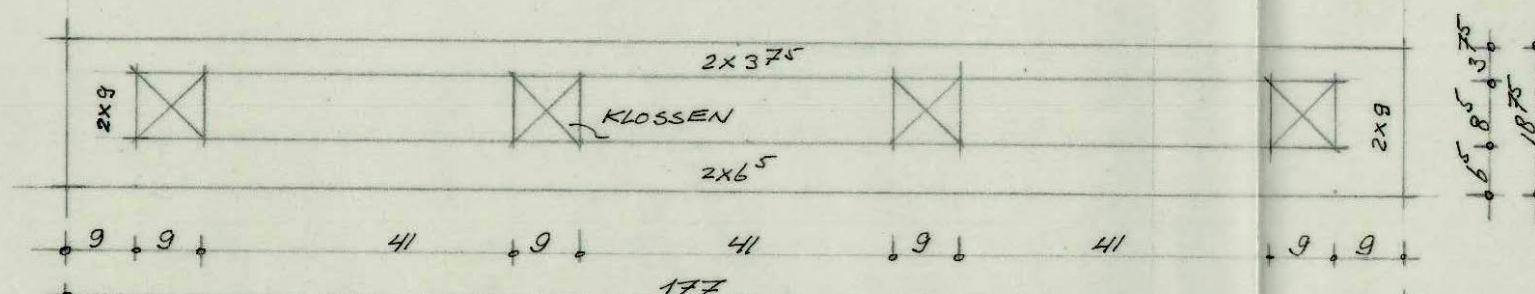 2x3⁷⁵
2x9
KLOSSEN
2x9
2x6⁵
9 9 41 9 41 9 41 9 9
177
6⁵ 8⁵ 3⁷⁵
18⁷⁵